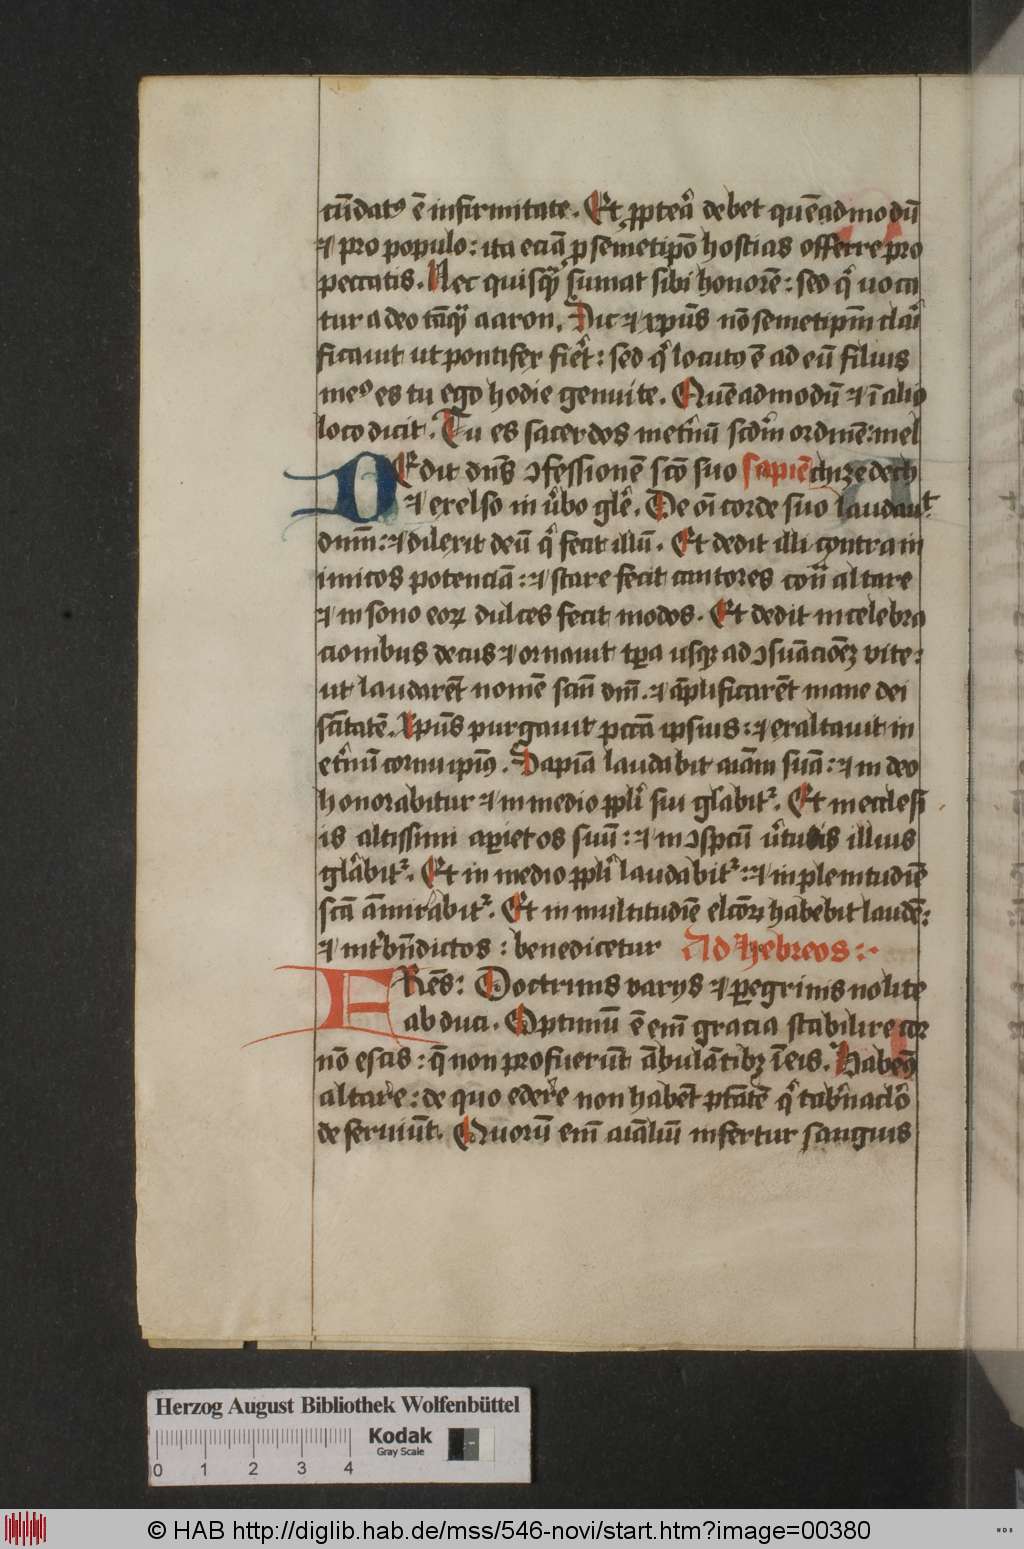 cu̅datꝰ e̅ infirmitate. Et ꝓpteꝛᷓ debet que̅admodu̅
⁊ pro populo: ita ecia̅ p semetip̅o hostias offerre pro
peccatis. Nec quisqᷓ sumat sibi honore̅: sed qͥ uoca
tur a deo ta̅qᷓ aaron, Sic ⁊ xp̅us no̅ semetip̅m claͥ
ficauit ut pontifex fiͤet: sed qͥ locutꝰ e̅ ad eu̅ filius
meꝰ es tu ego hodie genui te. Que̅admodu̅ ⁊ i̅ alio
loco dicit. Tu es sacerdos inet͛nu̅ scd̅m ordine̅: mel
DEdit dn̅s ꝯfessione̅ sc̅o suo sapien chizedech
⁊ excelso in u͛bo gl̅e. De oi̅ corde suo laudauͭ
dnm̅: ⁊ dilexit deu̅ qͥ fecit illu̅. Et dedit illi contra in
imicos potencia̅: ⁊ stare fecit cantores contᷓ altare
⁊ in sono eoꝝ dulces fecit modos. Et dedit in celebra
cionibus decus ⁊ ornauit tp̅a usqꝫ ad ꝯsu̅acio̅eꝫ vite:
ut laudare̅t nome̅ scm̅ dm̅. ⁊ a̅plificare̅t mane dei
sc̅itate̅. Xpu̅s purgauit pcc̅a ipsius: ⁊ exaltauit in
et͛nu̅ cornu ipiꝰ. Sapia̅ laudabit aia̅m sua̅: ⁊ in deo
honorabitur ⁊ in medio ppl̅i sui gl̅abit᷑. Et in ecclesi
is altissimi aꝑiet os suu̅: ⁊ in ꝯspc̅u u͛tutis illius
gl̅abit᷑. Et in medio ppl̅i laudabit᷑: ⁊ in plenitudi̅e
sc̅a a̅mirabit᷑. Et in multitudi̅e elc̅oꝝ habebit laude̅:
⁊ int͛ bn̅dictos: benedicetur Ad hebreos:·
FRes̅: Doctrinis varijs ⁊ ꝑegrinis nolite
abduci. Optimu̅ e̅ em̅ gracia stabilire cor
no̅ escis: q̅ non profueru̅t a̅bula̅tibꝫ i̅ eis. Habemꝰ
altare: de quo edere non habe̅t p̅tate̅ qͥ tab͛naclo̅
deseruiu̅t. Quoru̅ em̅ aia̅liu̅ infertur sanguis
Herzog August Bibliothek Wolfenbüttel
Kodak
Gray Scale
0 1 2 3 4
© HAB http://diglib.hab.de/mss/546-novi/start.htm?image=00380